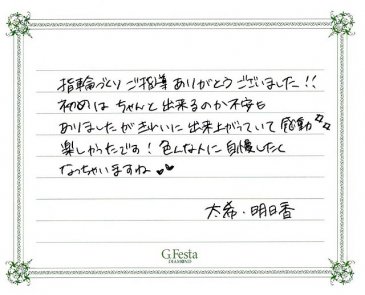 指輪づくり ご指導 ありがとうございました!!
初めは ちゃんと 出来るのか不安も
ありましたが きれいに 出来上がっていて 感動✨
楽しかったです! 色んな人に 自慢したく
なっちゃいますね♥♥
太希・明日香
G.Festa
DIAMOND